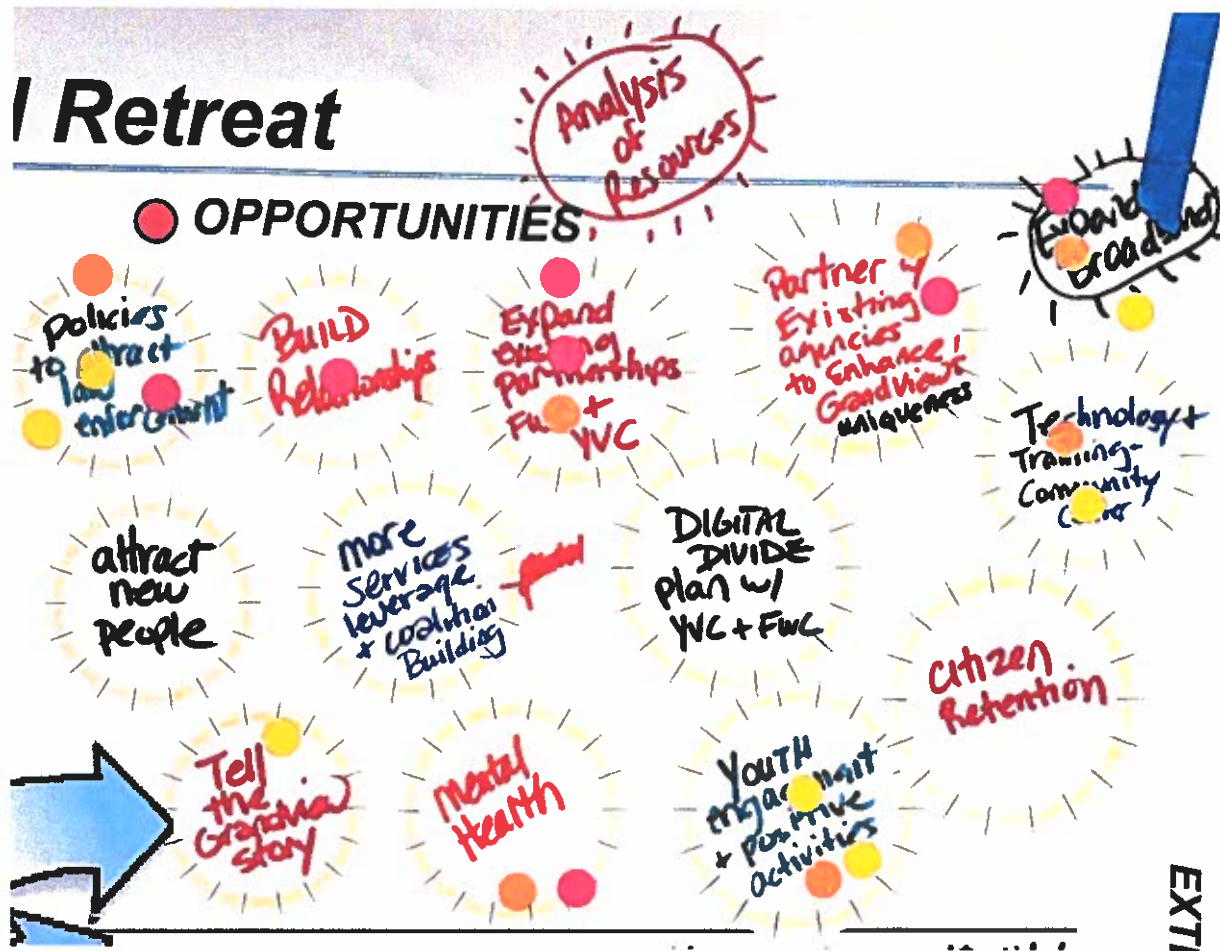 Retreat
Analysis
of
Resources
OPPORTUNITIES
Policies
to attract
law
enforcement
BUILD
Relationships
Expand
existing
partnerships
+
YVC
Partner w/
Existing
agencies
to Enhance
Grandviews
uniqueness
Expand
broadband
Technology +
Training-
Community
attract
new
people
more
services
leverage
+ coalition
Building
DIGITAL
DIVIDE
plan w/
YVC + FWC
citizen
Retention
Tell
the
Grandview
story
Mental
Health
YOUTH
engagement
+ positive
activities